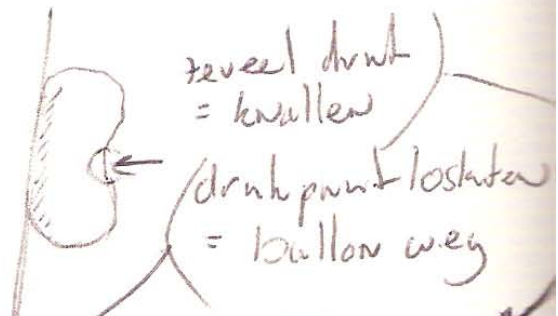 teveel druk
= knallen
drukpunt loslaten
= ballon weg